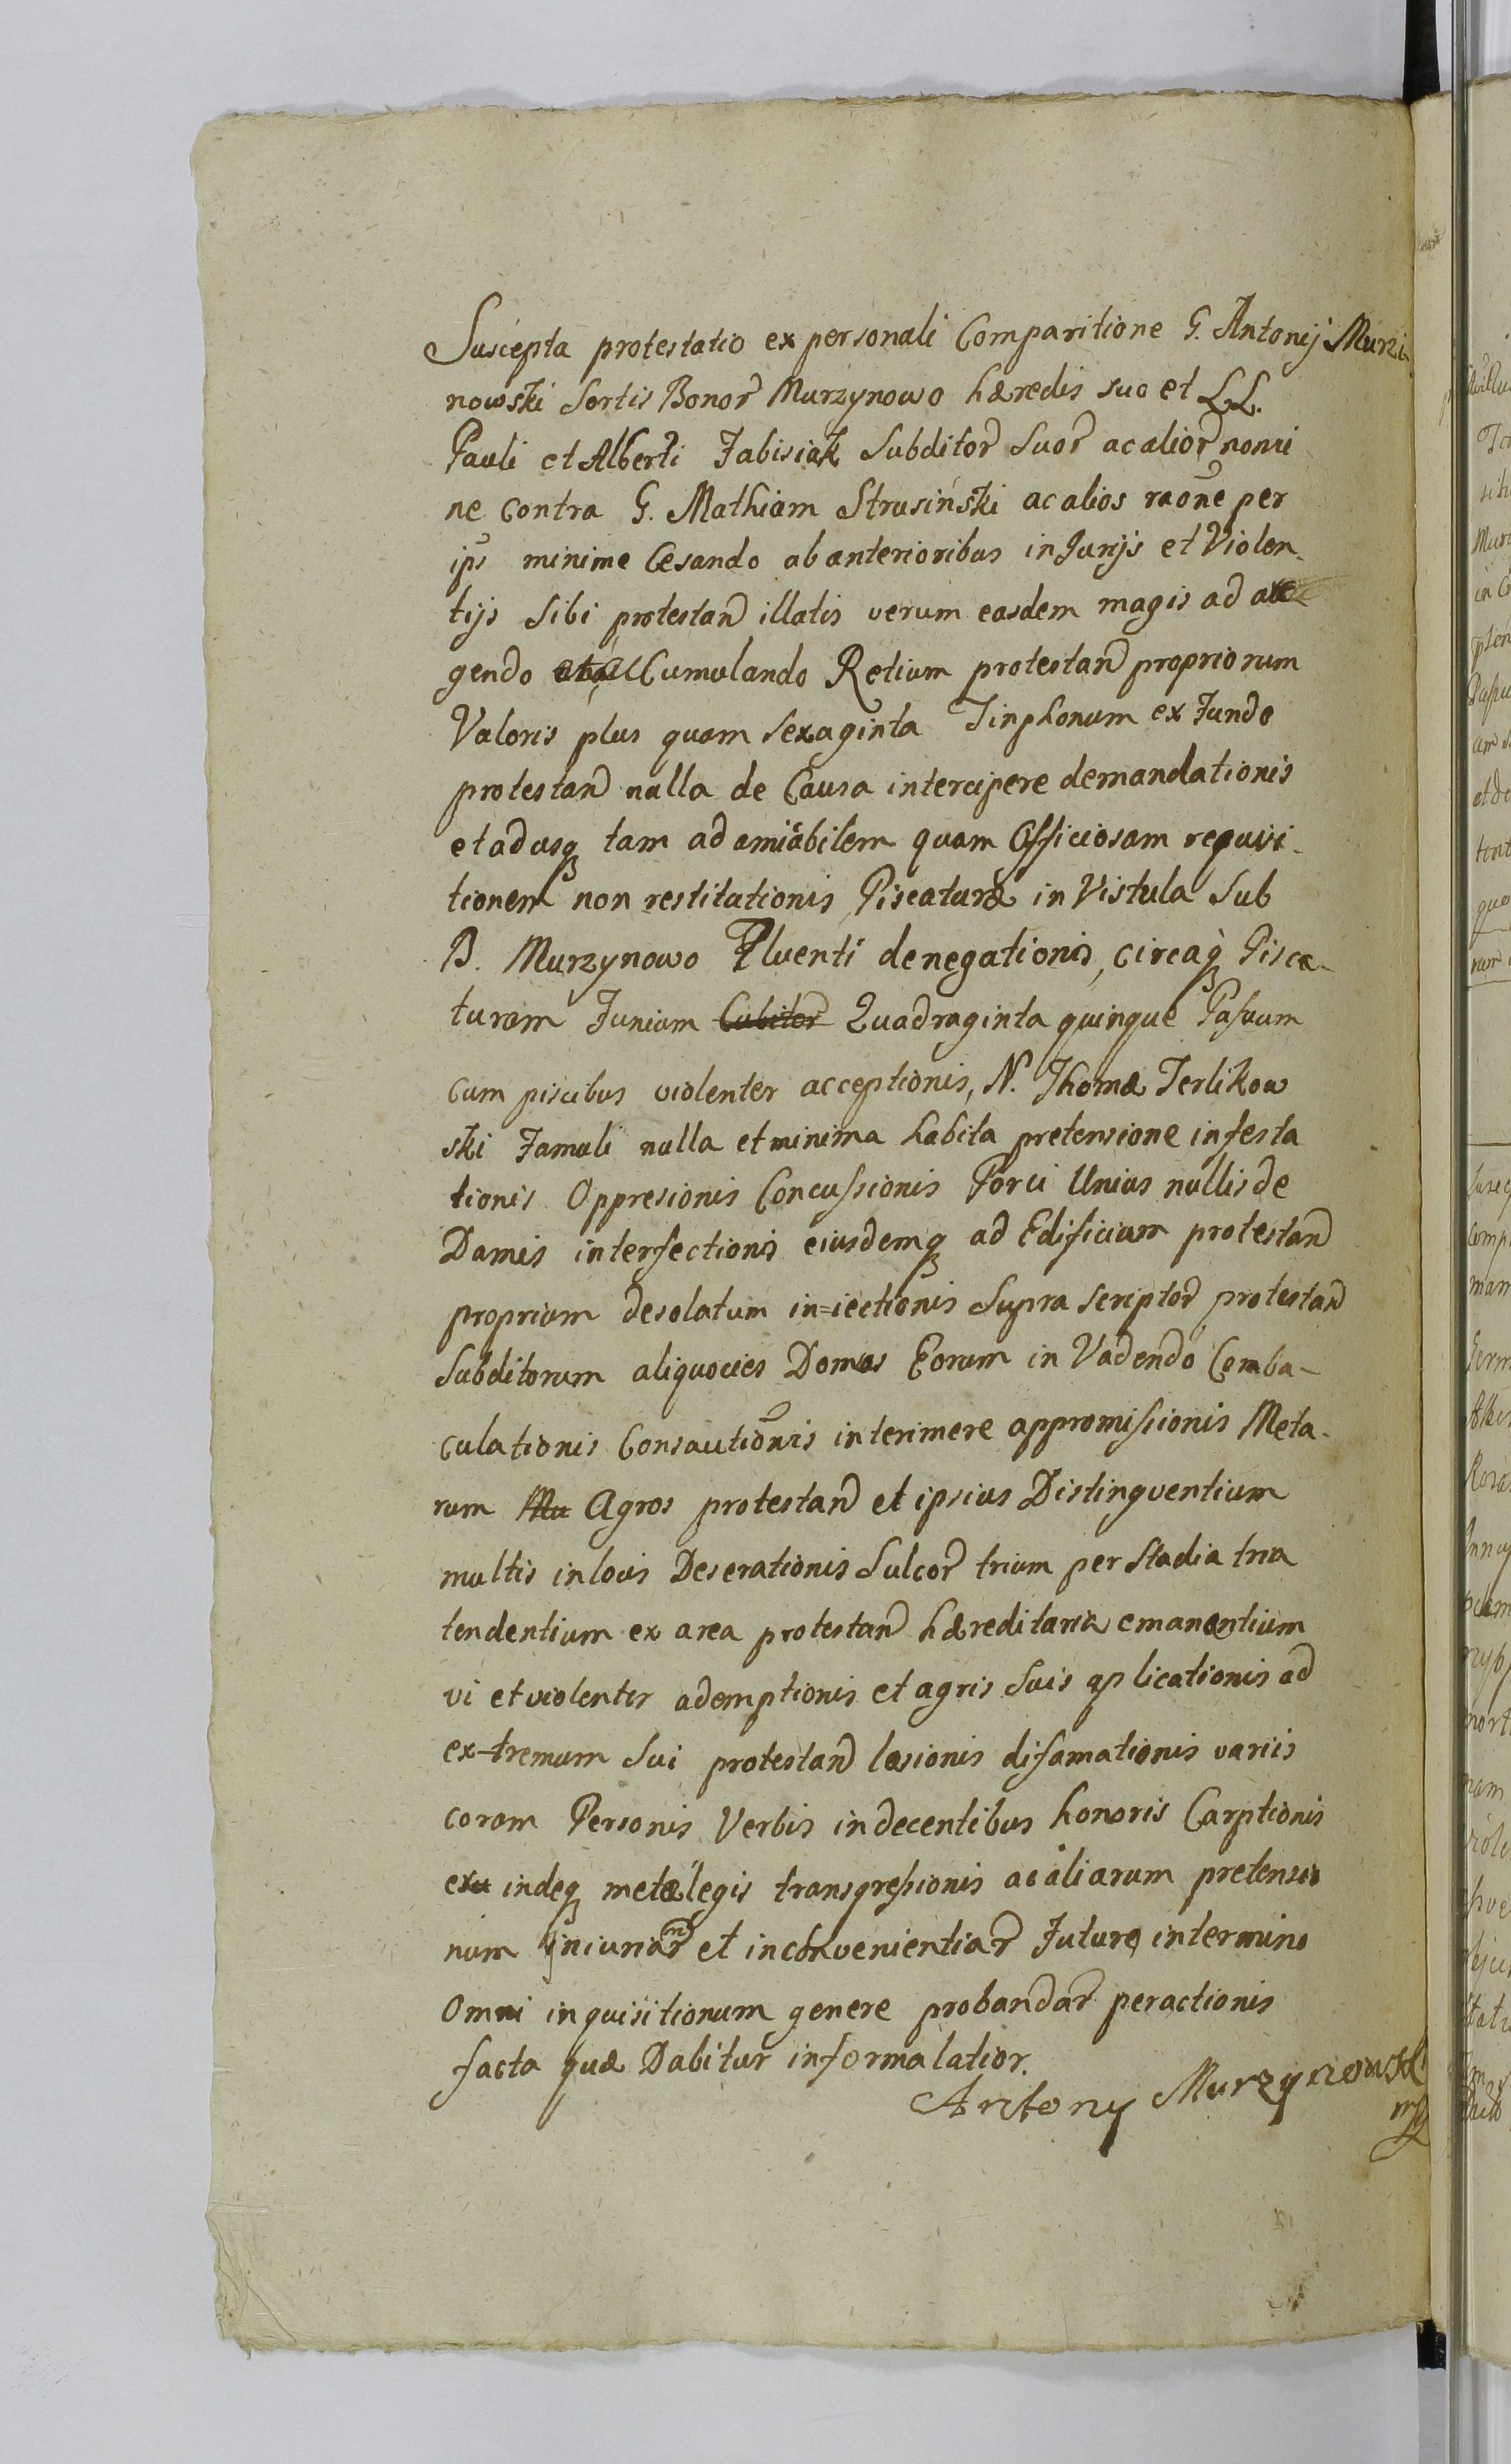 Suscepta protestatio ex personali Comparitione G. Antonij Murzi
nowski Sortis Bonor Murzynowo hæredis suo et LL.
Pauli et Alberti Fabisiak Subditor Suor ac alior nomi
ne Contra G. Mathiam Strusiński ac alios raone per
ips minime Cesando ab anterioribus inJurijs et Violen-
tijs Sibi protestan illatis verum easdem magis ad
gendo Cumulando Retium protestan propriorum
Valoris plus quam Sexaginta Tinphonum ex Funde
protestan nulla de Causa intercipere demandationis
et ad usq tam ad amiabilem quam Officiosam requisi-
tionem non restitutionis Piscaturæ in Vistula Sub
B. Murzynowo Fluenti denegationis, circaq Pisca-
turam Funium Cubitor Quadraginta quinque Passuum
cum piscibus violenter acceptionis, N. Thomæ Terlikow
ski Famuli nulla et minima habita pretensione infesta
tionis Oppresionis Concussionis Porci Unius nullis de
Damis interfectionis eiusdemq ad Edificium protestan
proprium desolatum in=iectionis Supra Scriptor protestan
Subditorum aliquocies Domos Eorum in Vadendo Comba-
culationis Consautionis interimere appromissionis Meta-
rum Mu Agros protestan et ipsius Distinguentium
multis in locis Deserationis Sulcor trium per Stadia tria
tendentium ex area protestan hæreditaria emanentium
vi et violenter ademptionis et agris Suis aplicationis ad
ex-tremum Sui protestan læsionis difamationis variis
coram Personis Verbis indecentibus honoris Carptionis
indeq metæ legis transgressionis ac aliarum pretensio
num Iniuriar et inconvenientiar Futuro in termino
Omni inquisitionum genere probandar peractionis
facta quæ Dabitur informa latior.
Antony Murzynowski
mp